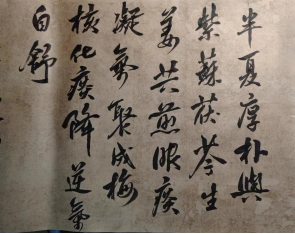 半夏厚朴與
紫蘇茯苓生
姜共煎服痰
凝氣聚成梅
核化痰降逆氣
自舒